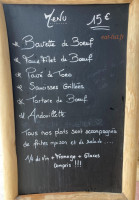 Menu
15€
* Bavette de Boeuf
* Faux Filet de Boeuf
* Pavé de Toro
* Saucisses Grillées
* Tartare de Boeuf
* Andouillette
Tous nos plats sont accompagnés
de frites maison et de salade
1/4 de Vin + Fromage + Glaces
Compris !!!